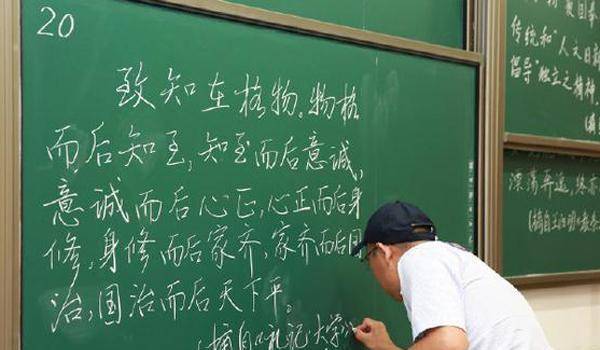 20
致知在格物。物格
而后知至,知至而后意诚,
意诚而后心正,心正而后身
修,身修而后家齐,家齐而后国
治,国治而后天下平。
(摘自《礼记·大学
传统和"人文日新
倡导"独立之精神,
(摘
漂荡弃远,终
(摘自